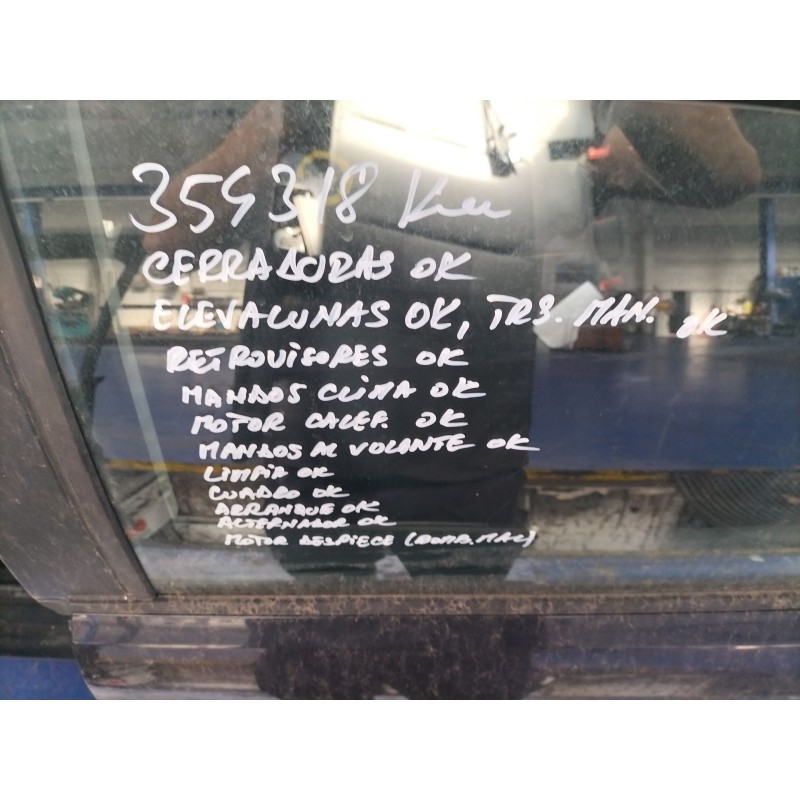 359318 Km
CERRADURAS OK
ELEVALUNAS OK, TRS. MAN. OK
RETROVISORES OK
MANDOS CLIMA OK
MOTOR CALEF. OK
MANDOS AL VOLANTE OK
LIMPIA OK
CUADRO OK
ARRANQUE OK
ALTERNADOR OK
MOTOR DESPIECE (BOMB. MAL)